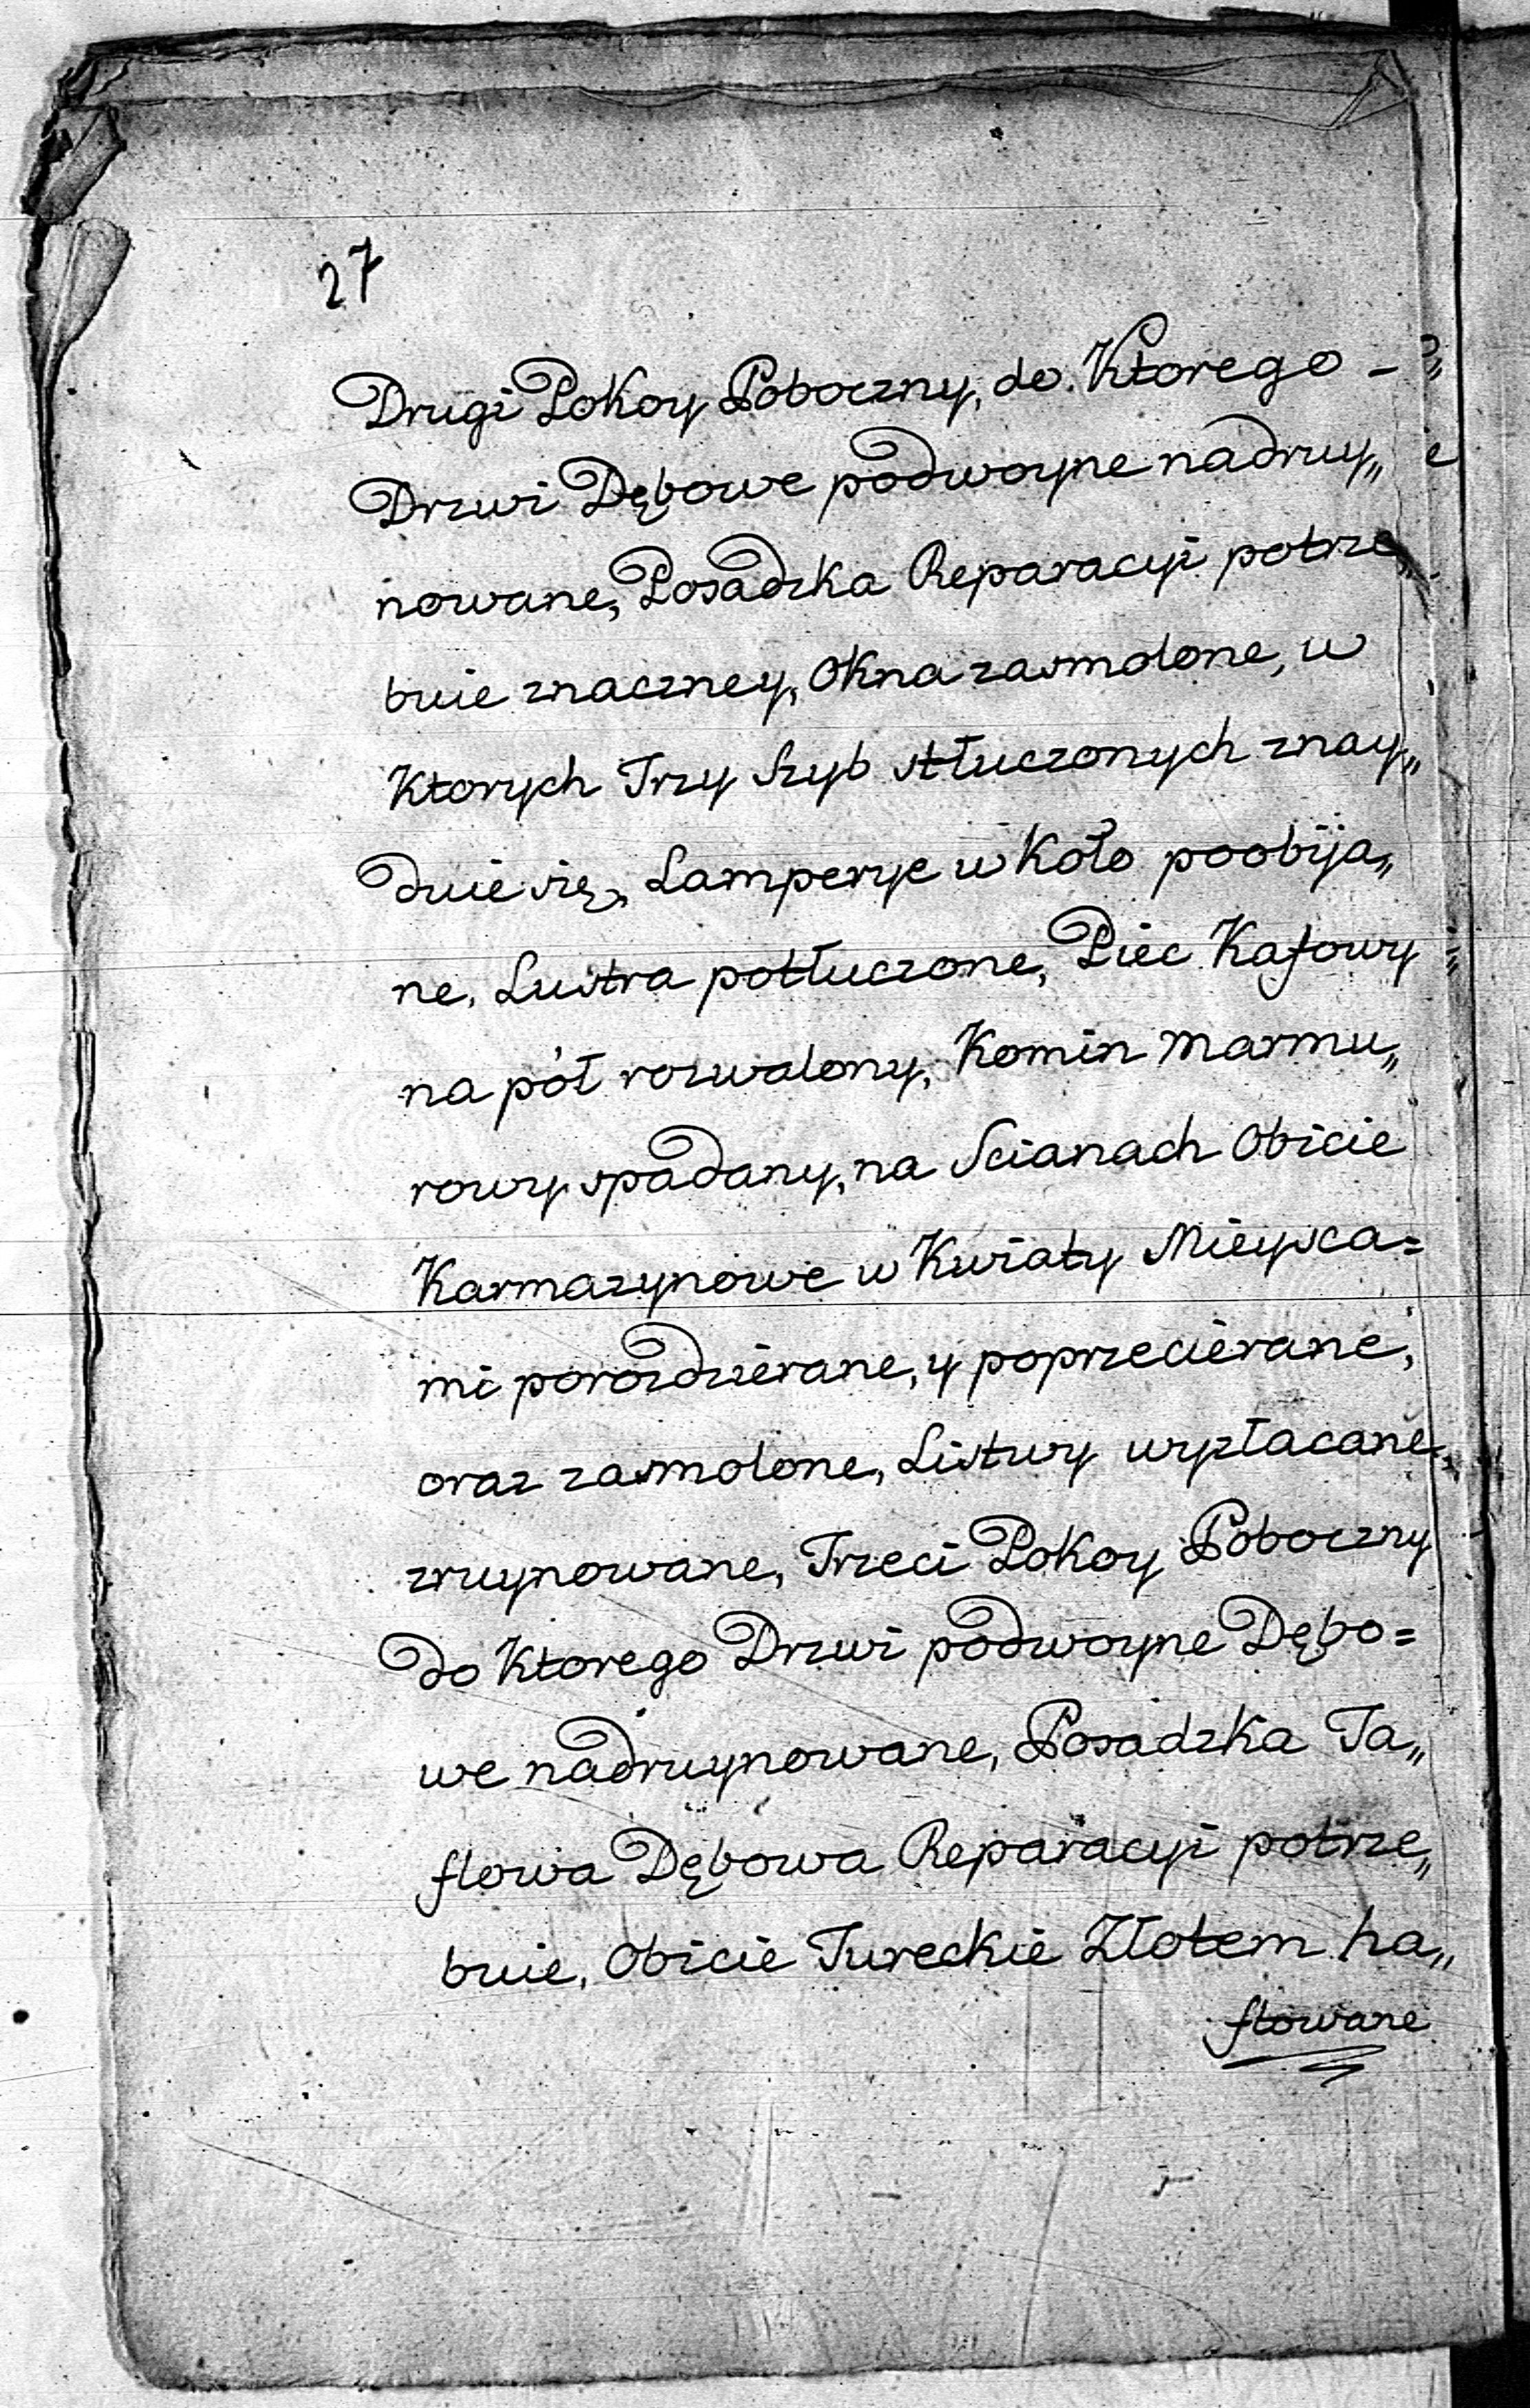 27
Drugi Pokoy Poboczny, do Ktorego -
Drzwi Dębowe podwoyne nadruy„
nowane, Posadzka Reparacyi potrze„
buie znaczney, Okna zasmolone, w
Ktorych Trzy Szyb stłuczonych znay„
duie się, Lamperye w Koło poobija„
ne, Lustra potłuczone, Piec Kaflowy
na pół rozwalony, Komin Marmu„
rowy spadany, na Scianach Obicie
Karmazynowe w Kwiaty Mieysca=
mi porozdzierane, y poprzecierane,
oraz zasmolone, Listwy wyzłacane,
zruynowane, Trzeci Pokoy Poboczny
do Ktorego Drzwi podwoyne Dębo=
we nadruynowane, Posadzka Ta„
flowa Dębowa Reparacyi potrze„
buie, Obicie Tureckie Złotem ha„
ftowane